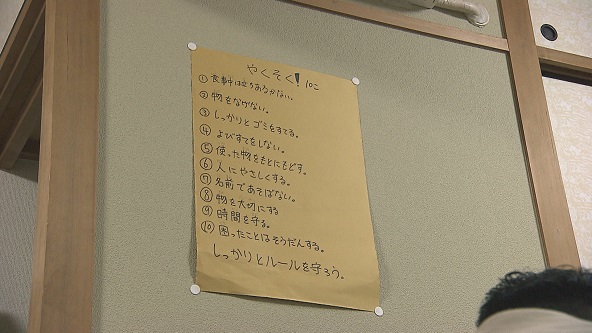 やくそく！10こ
① 食事中は立りあるかない。
② 物をなげない。
③ しっかりとゴミをすてる。
④ よびすてをしない。
⑤ 使った物をもとにもどす。
⑥ 人にやさしくする。
⑦ 名前であそばない。
⑧ 物を大切にする
⑨ 時間を守る。
⑩ 困ったことはそうだんする。
しっかりとルールを守ろう。